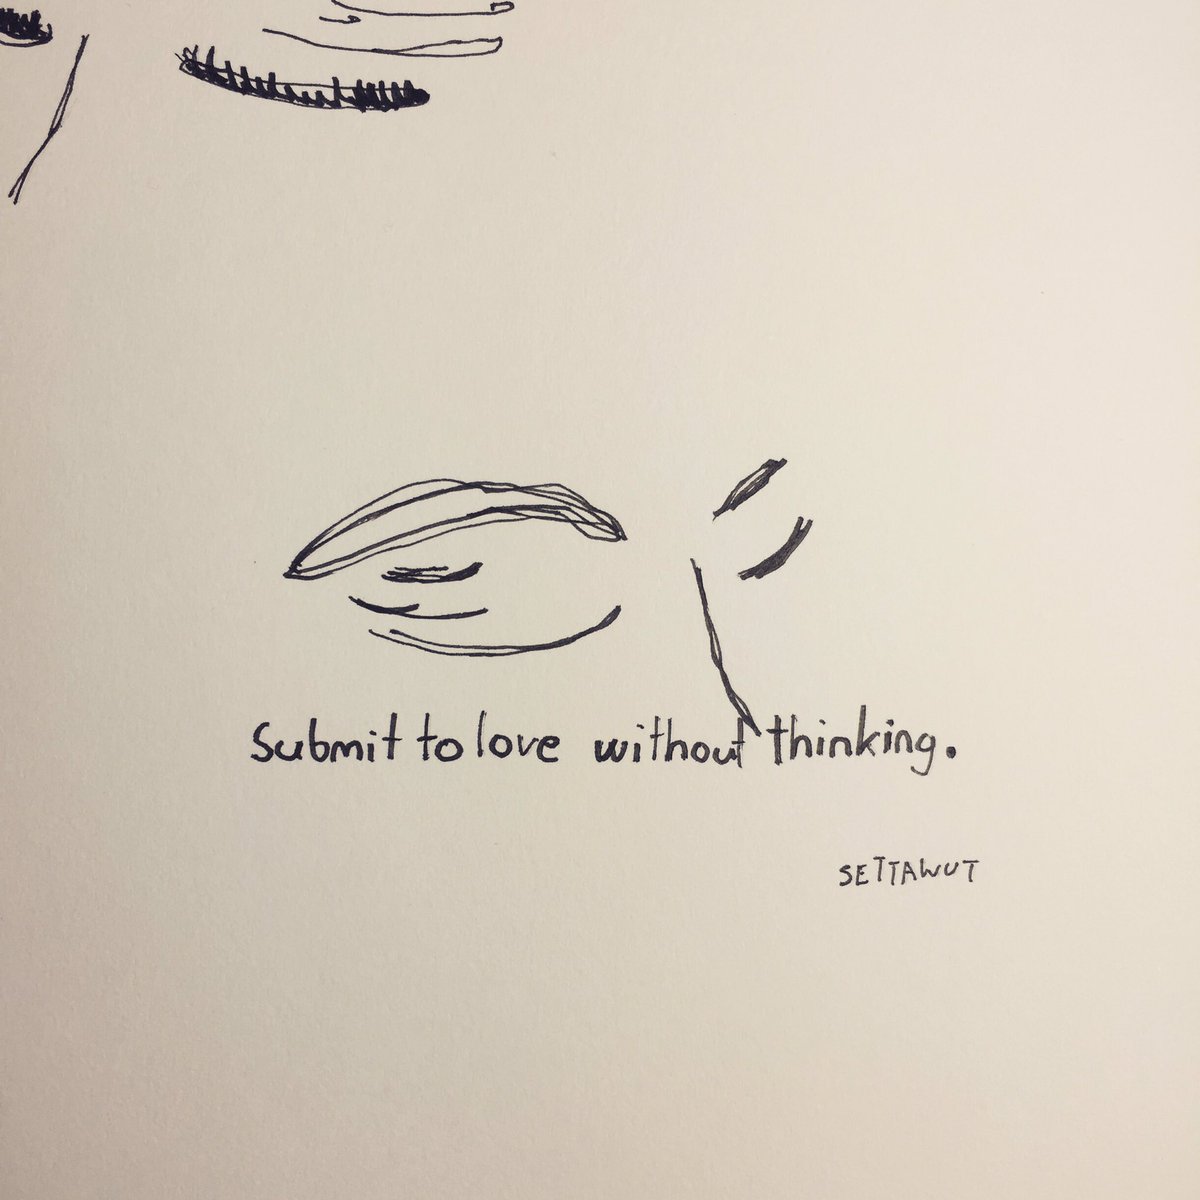 Submit to love without thinking.
SETTAWUT